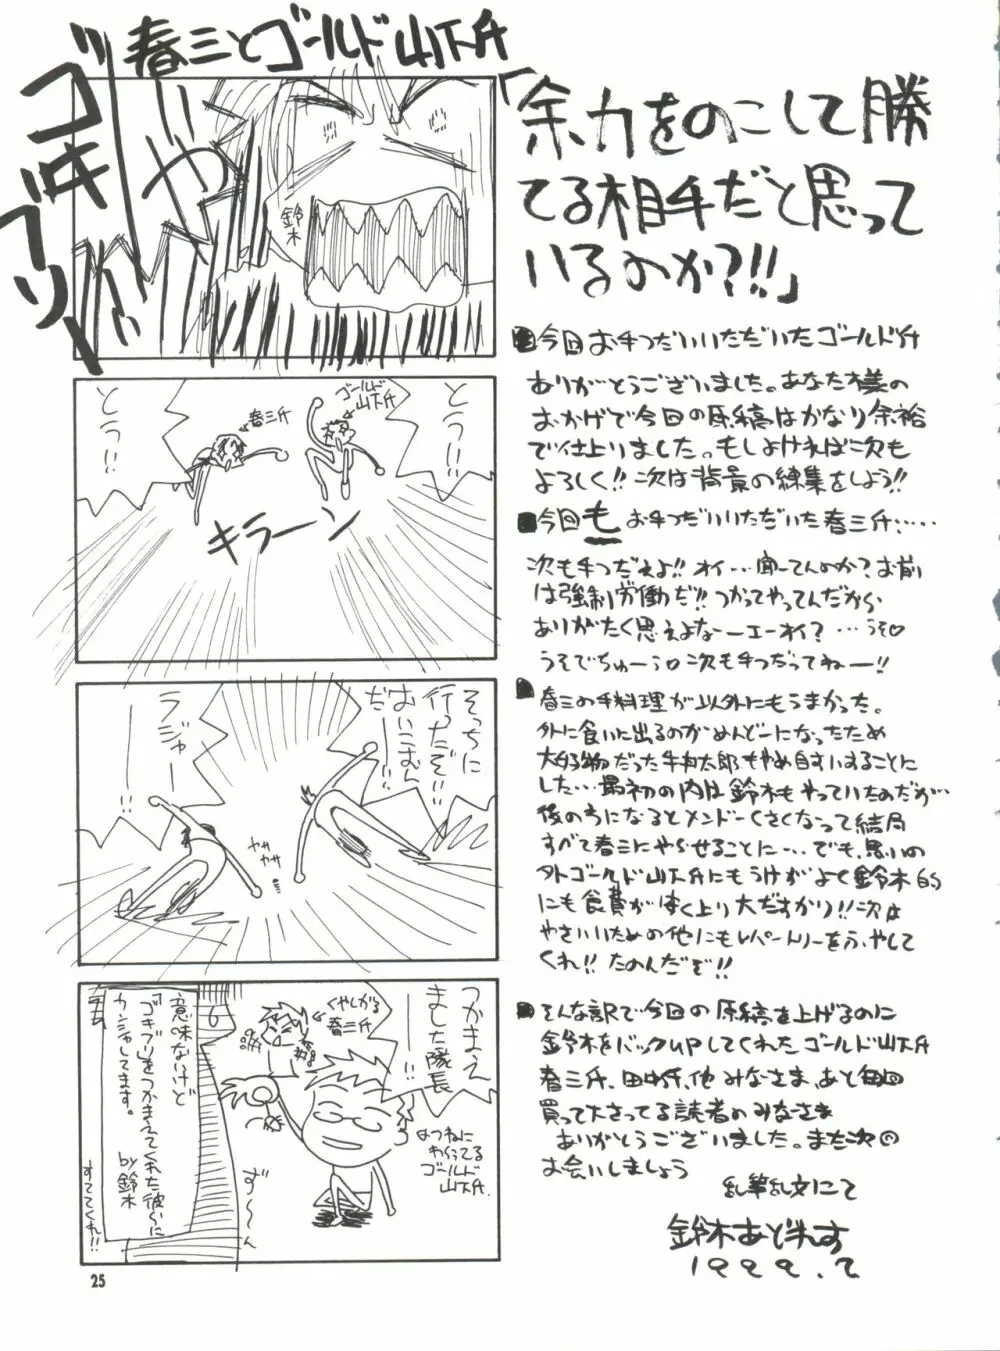 春三とゴールド山下斤
ゴキブリ
いや
鈴木
とうっ!!
ゴールド
山下斤
春三斤
とうっ!!
キラーン
そっちに
行ったぞ!!
おいこむん
だ!!
ラジャー
カサカサ
つかまえ
ました隊長
!!
くやしがる
春三斤
よつねに
わらってる
ゴールド
山下斤
ず〜〜ん
意味ないけど
「ゴキブリ」をつかまえてくれた彼らに
カンシャしてます。
by鈴木
すててくれ!!
25
「余力をのこして勝
てる相手だと思って
いるのか?!!」
今回お手つだいいただいたゴールド斤
ありがとうございました。あなた様の
おかげで今回の原稿はかなり余裕
で仕上りました。もしよければ次も
よろしく!! 次は背景の練集をしよう!!
今回もお手つだいいただいた春三斤……
次も手つだえよ!! オイ…聞ーてんのか?お前
は強制労働だ!! つかってやってんだから
ありがたく思えよなーエーオイ? …うそ♡
うそでちゅーう♡次も手つだってねー!!
春三の手料理が以外にもうまかった。
外に食いに出るのがめんどーになったため
大好物だった牛丼太郎もやめ自すいすることに
した…最初の内は鈴木もやっていたのだが…
後の方になるとメンドーくさくなって結局
すべて春三にやらせることに…でも、思いの
外ゴールド山下斤にもうけがよく鈴木的
にも食費がすく上り大だすかり!! 次は
やさいいための他にもレパートリーをふやして
くれ!! たのんだぞ!!
そんな訳で今回の原稿を上げるのに
鈴木をバックupしてくれたゴールド山下斤
春三斤、田中斤、他みなさま、あと毎回
買って下さってる読者のみなさま
ありがとうございました。また次の
お会いしましょう
乱筆乱文にて
鈴木あどれす
1999.2